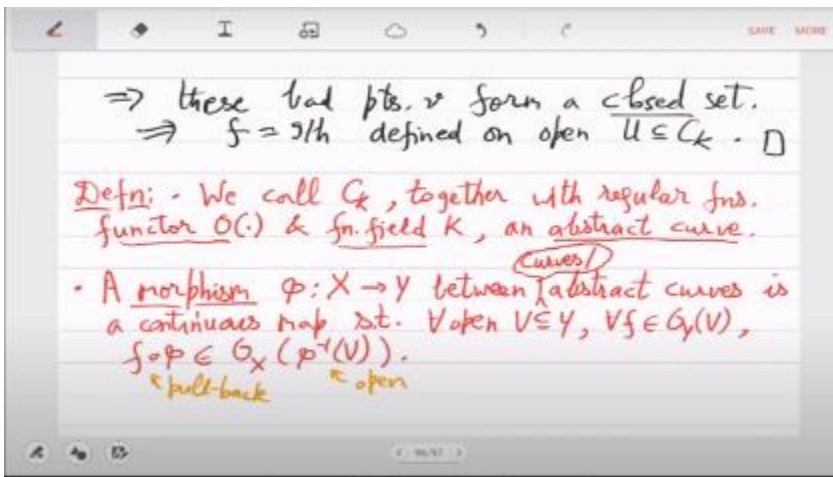 SAVE MORE
⇒ these bad pts. v form a closed set.
⇒ f = g/h defined on open U ⊆ C_K. □
Defn: · We call C_K, together with regular fns.
functor O(·) & fn. field K, an abstract curve.
curves/
· A morphism φ: X → Y between abstract curves is
a continuous map s.t. ∀ open V ⊆ Y, ∀f ∈ O_Y(V),
f∘φ ∈ O_X(φ⁻¹(V)).
pull-back open